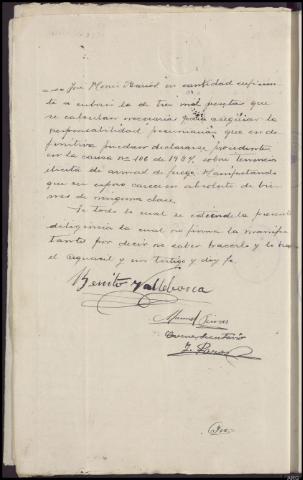 José Menci Marió en cantidad suficien
te a cubrir la de tres mil pesetas que
se calculan necesarias para asegurar la
responsabilidad pecuniaria que en de
finitiva pudiera declararse procedente
en la causa nº 106 de 1937, sobre tenencia
ilícita de armas de fuego. Manifestando
que su esposo carece en absoluto de bie
nes de ninguna clase.
De todo lo cual se extiende la presente
diligencia la cual no firma la manifes
tante por decir no saber hacerlo y lo hace
el alguacil y un testigo y doy fe
Benito Vallebona
Manuel